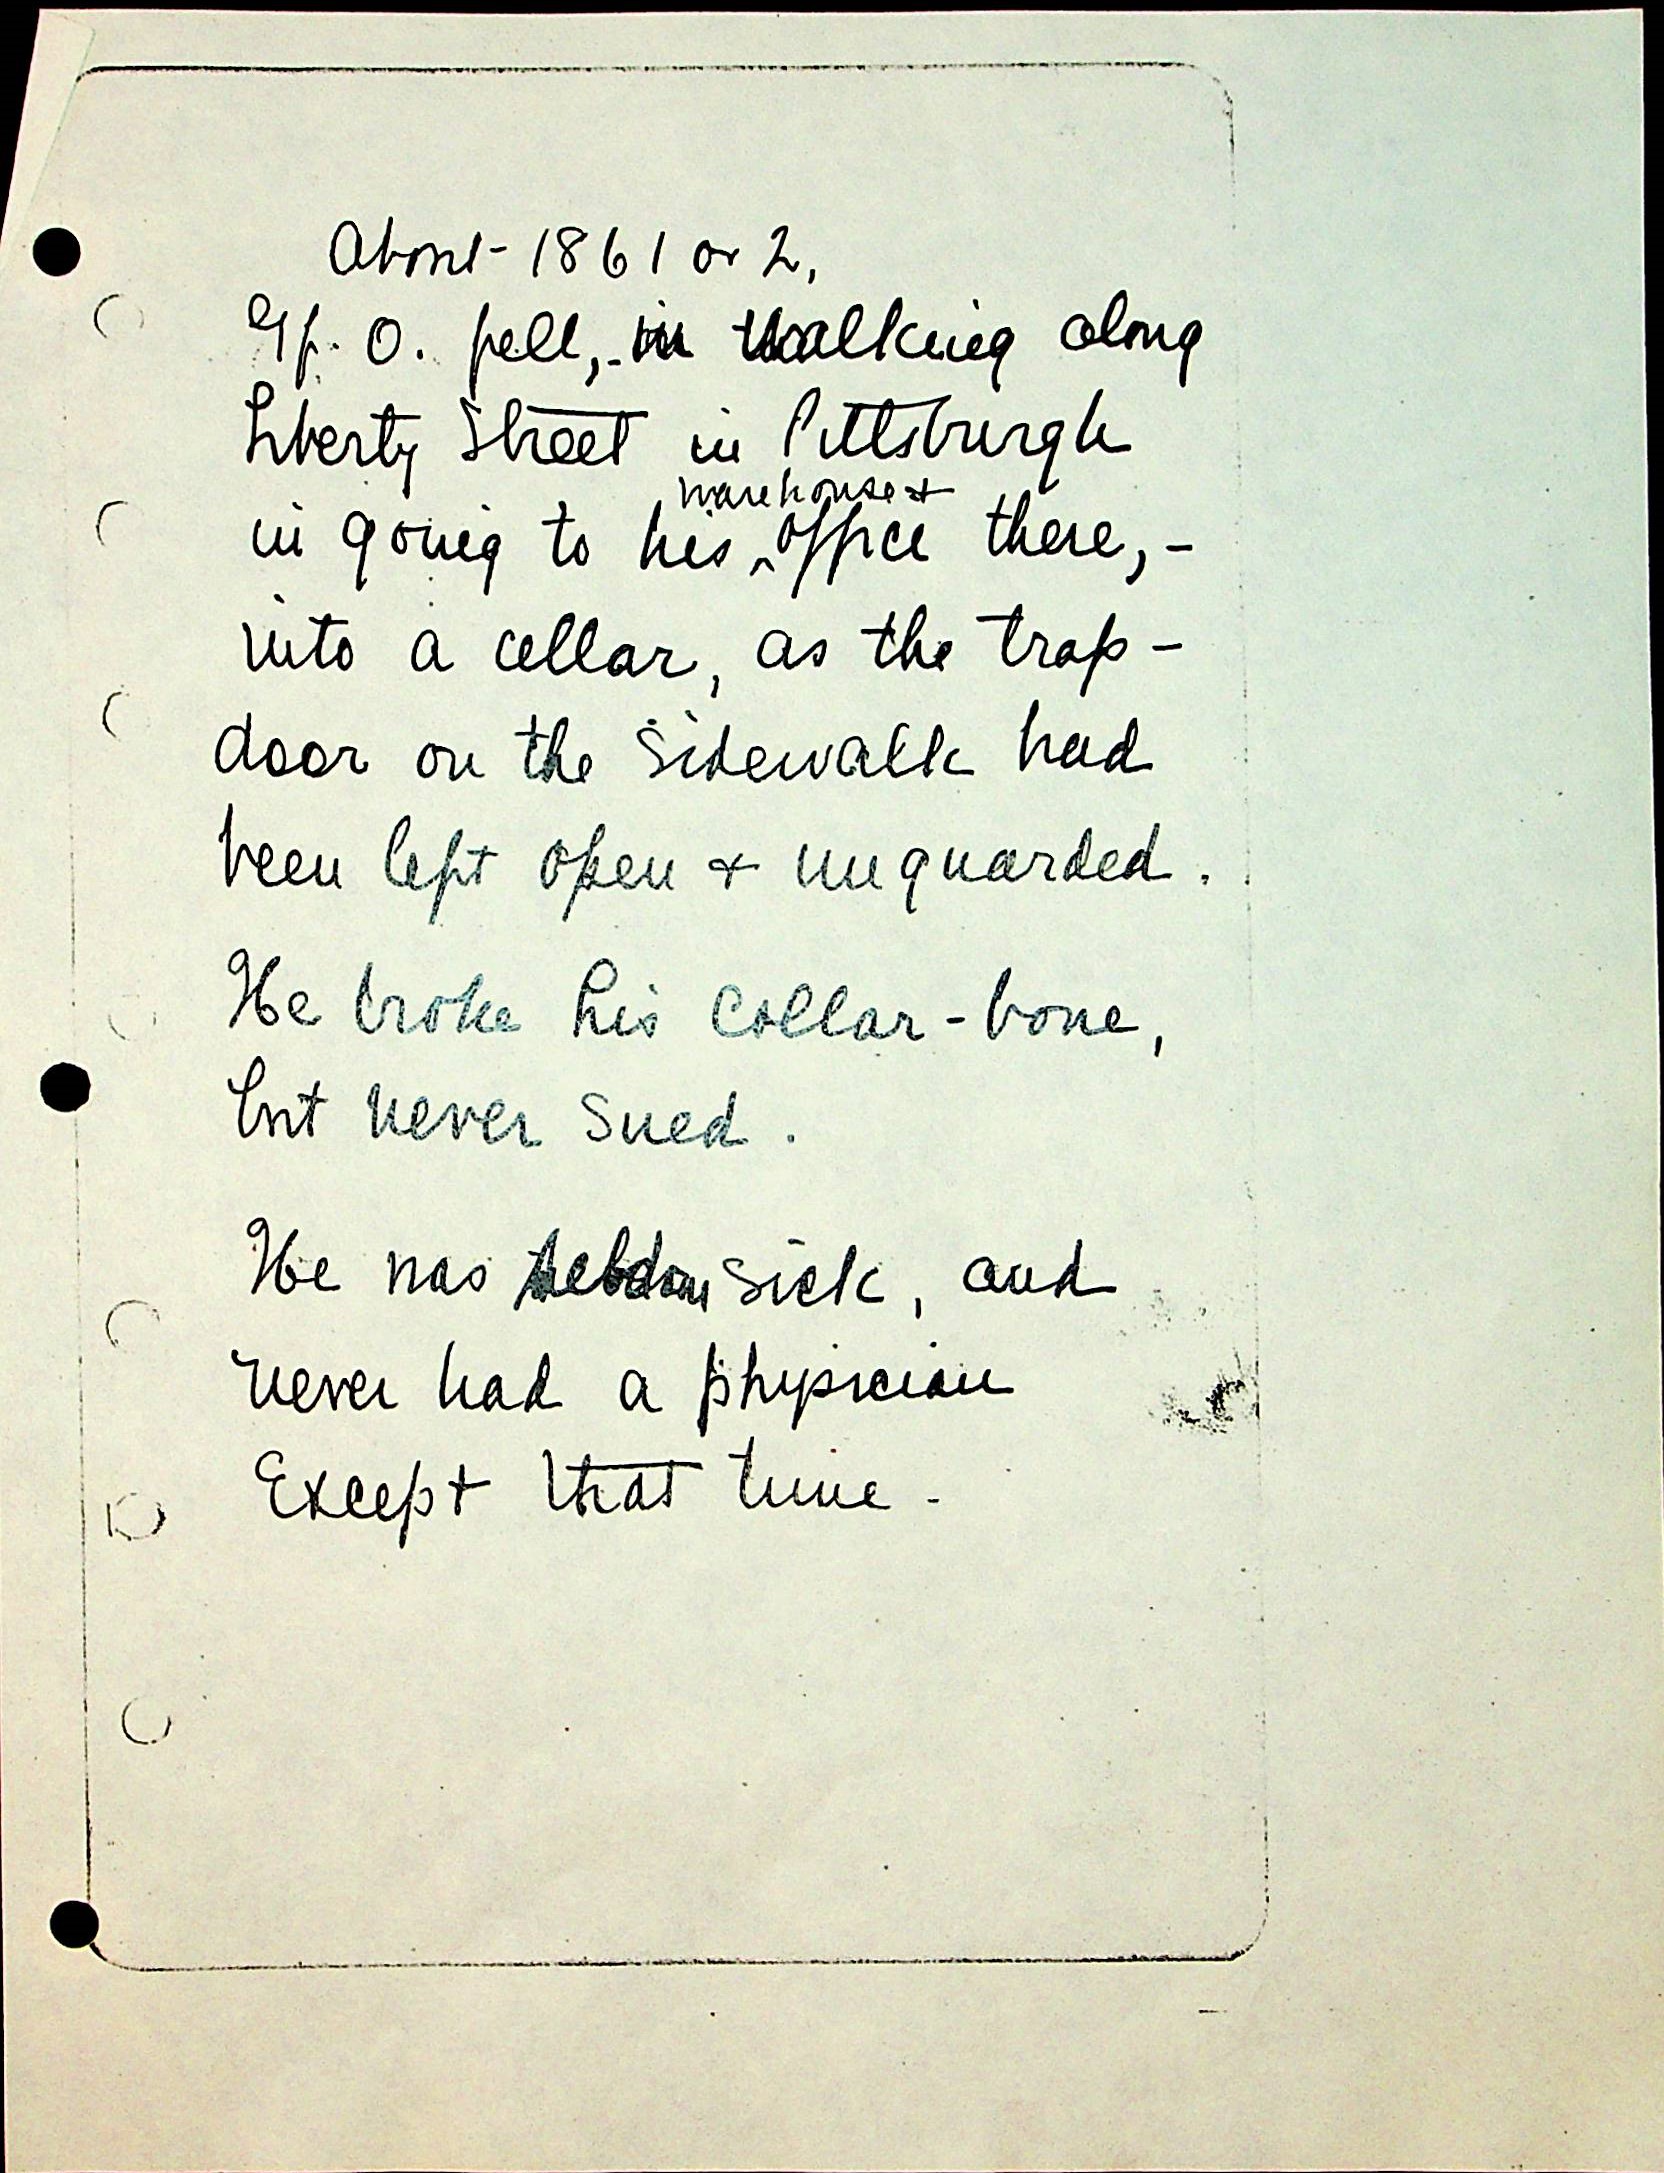 About 1861 or 2,
Gf. O. fell, - in walking along
Liberty Street in Pittsburgh
warehouse +
in going to his ^ office there, -
into a cellar, as the trap-
door on the sidewalk had
been left open + unguarded.
He broke his collar-bone,
but never sued.
He was seldom sick, and
never had a physician
Except that time.